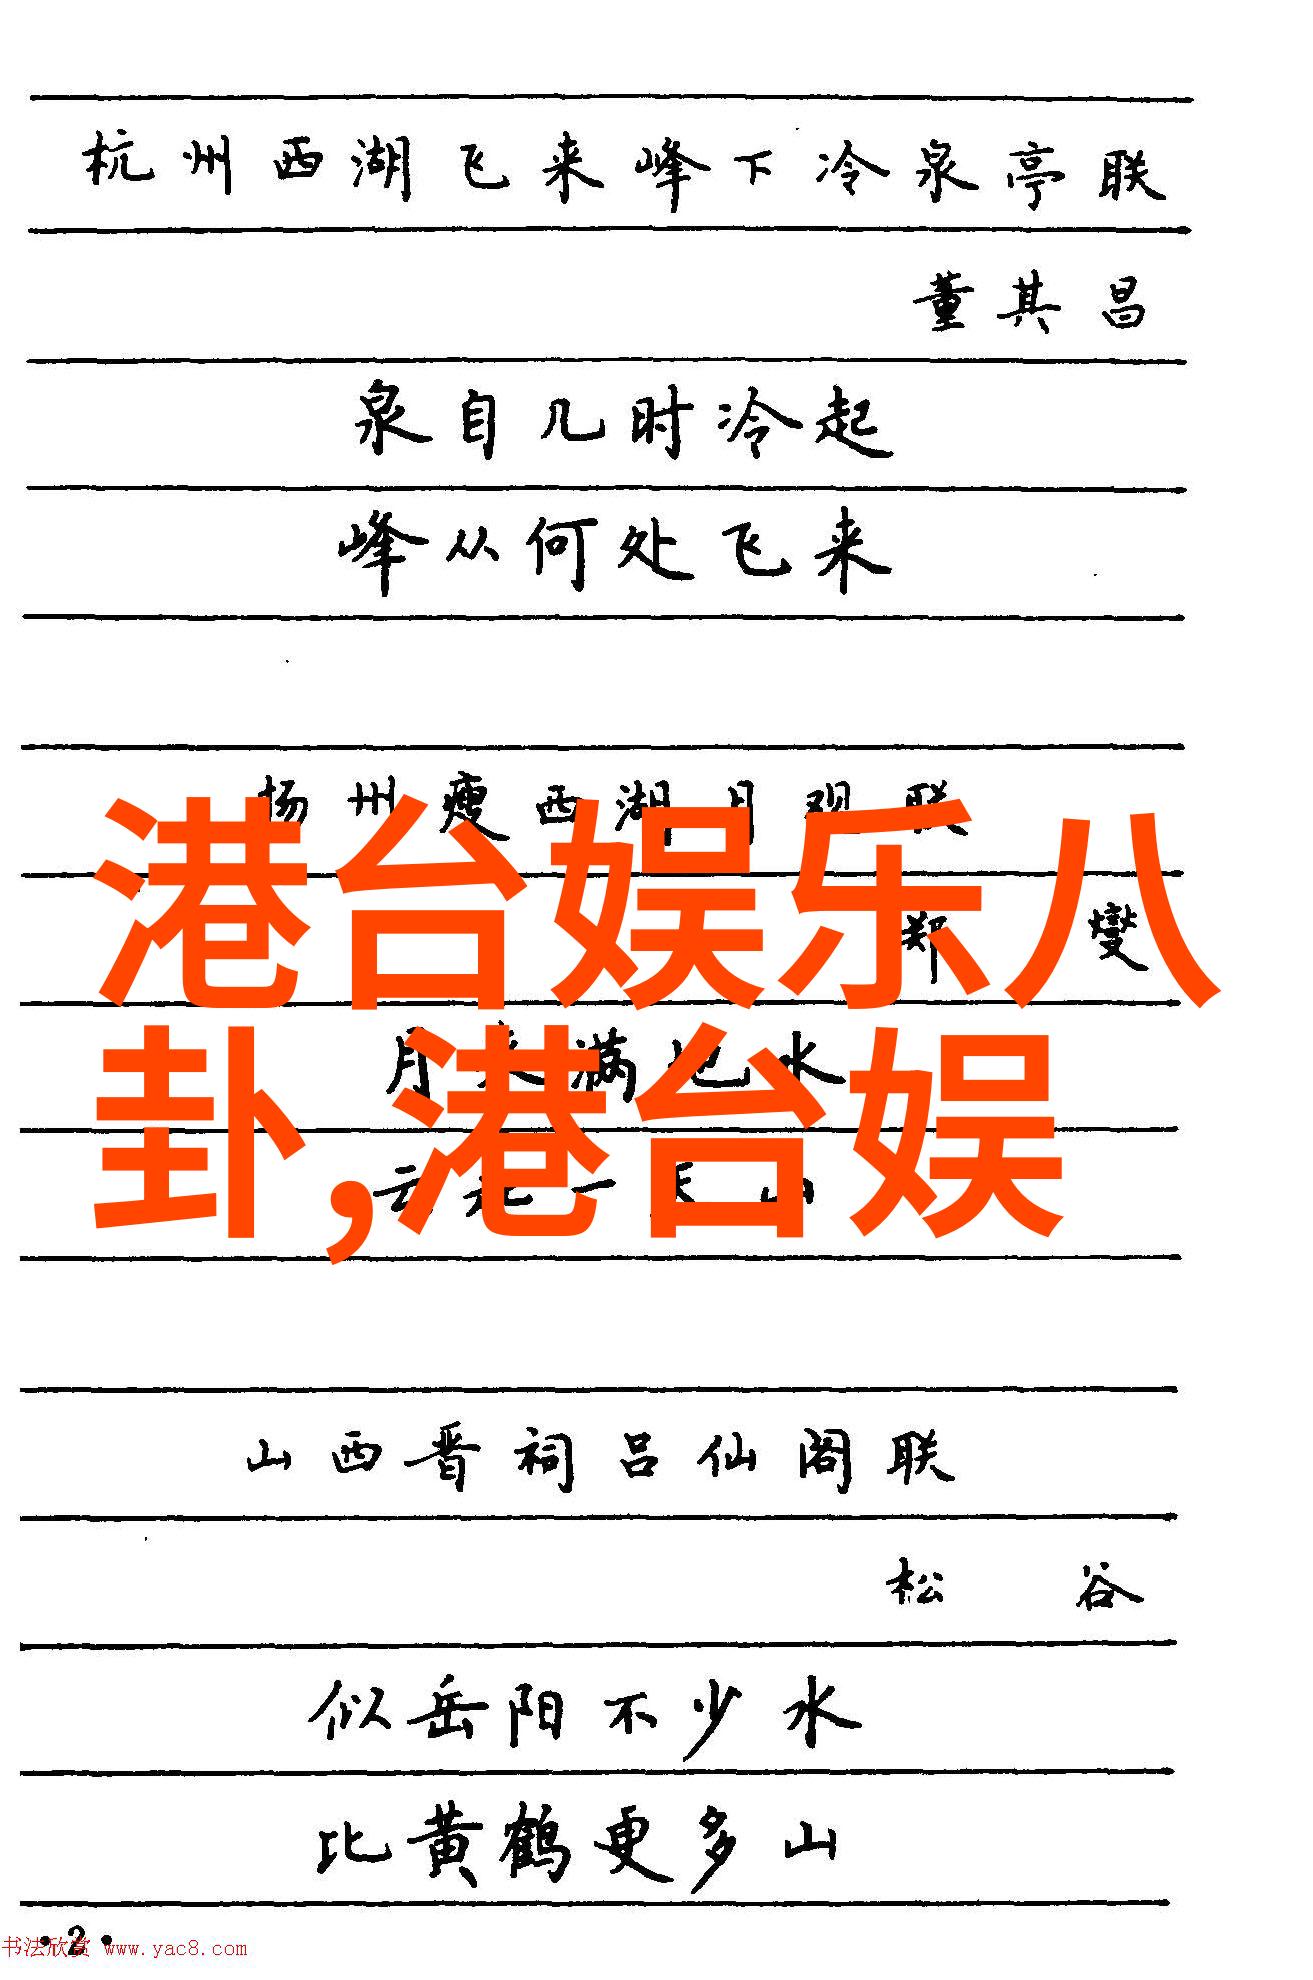 杭州西湖飞来峰下冷泉亭联
董其昌
泉自几时冷起
峰从何处飞来
扬州瘦西湖月观联
港台娱乐八
郑燮
月来满地水
卦,港台娱
云起一天山
山西晋祠吕仙阁联
松谷
似岳阳不少水
比黄鹤更多山
·2·
书法欣赏 www.yac8.com